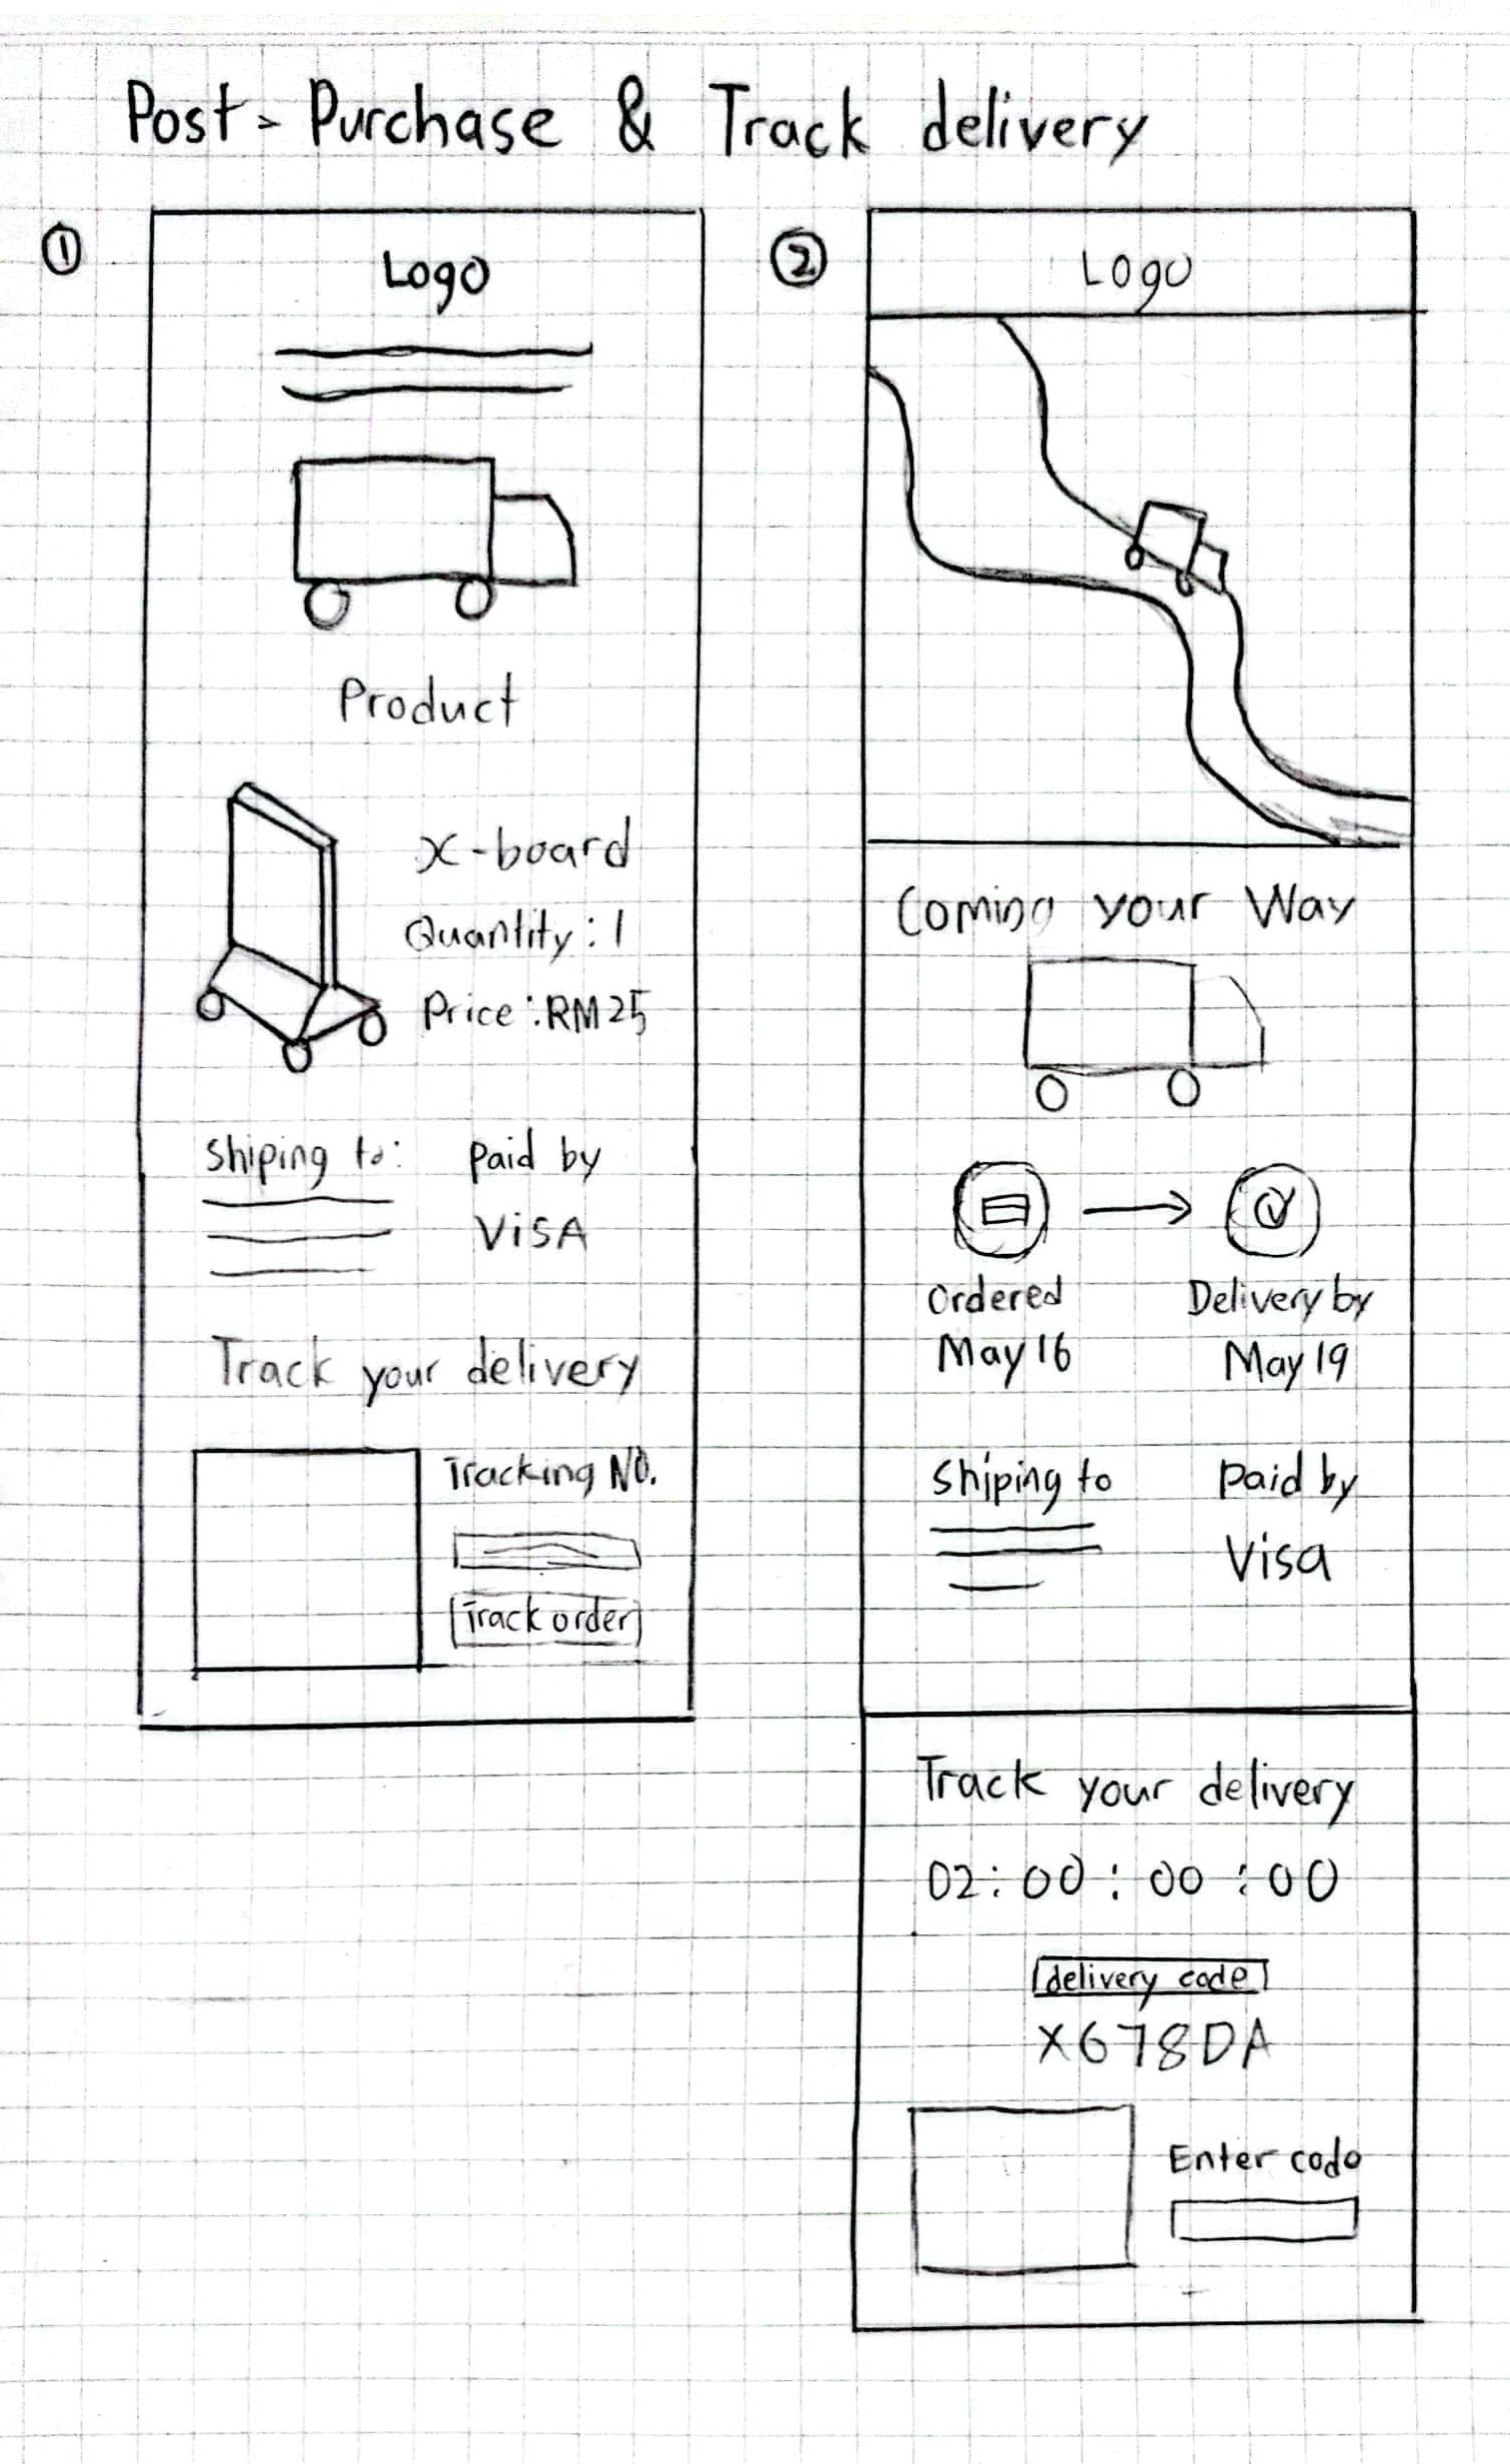 Post - Purchase & Track delivery
1
Logo
Product
X-board
Quantity: 1
Price: RM25
Shiping to:
Paid by
VISA
Track your delivery
Tracking NO.
Track order
2
Logo
Coming your Way
Ordered
May 16
Delivery by
May 19
Shiping to
Paid by
Visa
Track your delivery
02:00:00:00
delivery code
X678DA
Enter code